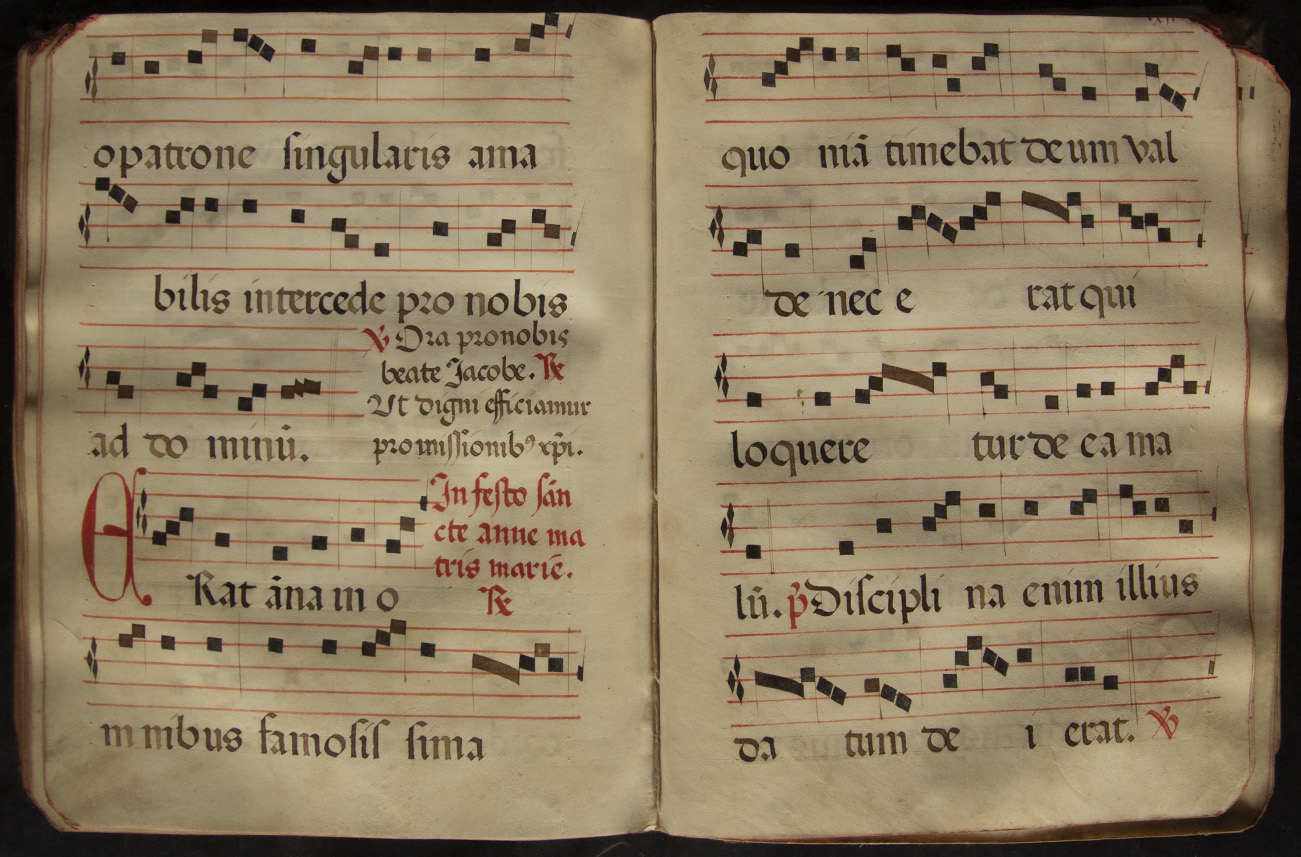 o patrone singularis ama
bilis intercede pro nobis
℣ Ora pro nobis
beate Jacobe. ℟
Ut digni efficiamur
ad do minū.
promissionibꝰ xp̄i.
In festo sān
cte anne ma
tris marie.
ERat āna in o
℟
mnibus famosis sima
quo niā timebat deum val
de nec e rat qui
loquere tur de ea ma
lū. p̄ Discipli na enim illius
da tum de i erat. ℣